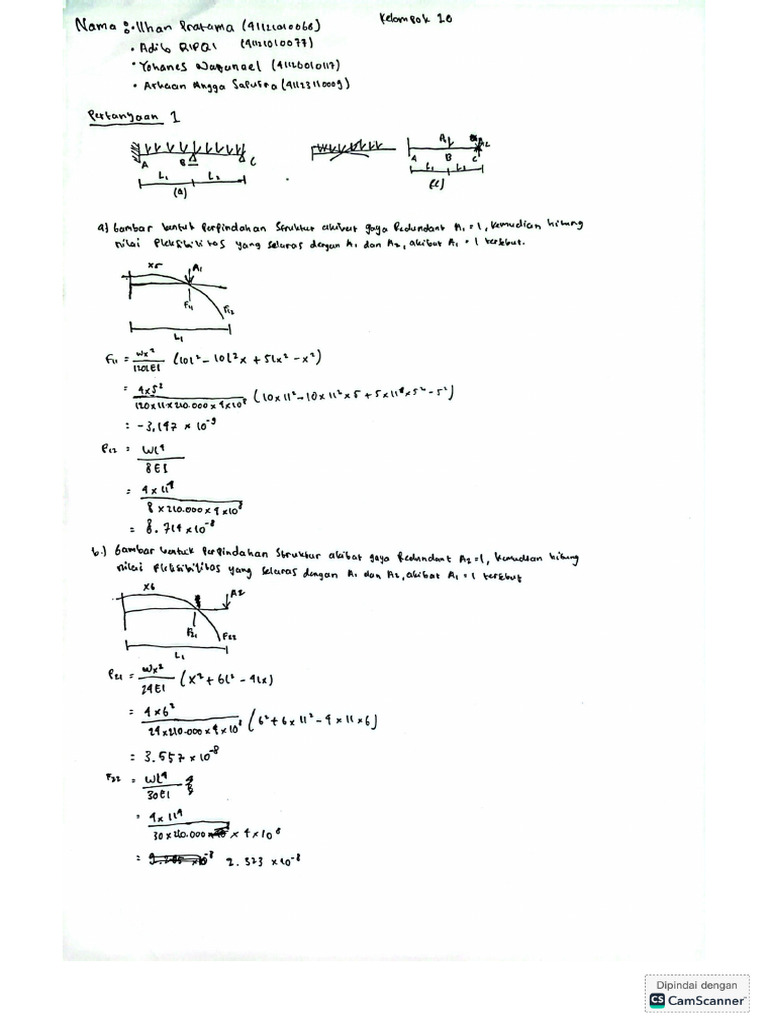 Nama : • Ilhan Pratama (41121010068)
Kelompok 20
• Adib RIPQI (41121010077)
• Yohanes (41120010117)
• Arhaan Angga Saputra (41123110009)
Pertanyaan 1
A B C
L₁ L₂
(A)
A₁ A2
A B C
L₁ L₂
a) Gambar bentuk Perpindahan Struktur akibat gaya Redundant A₁ = 1, kemudian hitung
nilai Fleksibilitas yang selaras dengan A₁ dan A₂, akibat A₁ = 1 tersebut.
x5 A₁
F₁₁ F₁₂
L₁
F₁₁ = wx²/120LEI (10L² - 10L²x + 5Lx² - x²)
= 4x5²/120x11x210.000x4x10⁸ (10x11² - 10x11²x5 + 5x11x5² - 5²)
= -3,197 x 10⁻⁹
F₁₂ = WL⁴/8EI
= 4 x 11⁴/8 x 210.000 x 4 x 10⁸
= 8.714 x 10⁻⁸
b.) Gambar bentuk Perpindahan Struktur akibat gaya Redundant A₂=1, kemudian hitung
nilai Fleksibilitas yang selaras dengan A₁ dan A₂, akibat A₁ = 1 tersebut
x6 A2
F₂₁ F₂₂
L₁
F₂₁ = wx²/24EI (x² + 6L² - 4Lx)
= 4 x 6²/24x210.000x4x10⁸ (6² + 6 x 11² - 4 x 11 x 6)
= 3.557 x 10⁻⁸
F₂₂ = WL⁴/30EI
= 4x 11⁴/30 x 210.000 x 4 x 10⁸
= 2.323 x 10⁻⁸
Dipindai dengan
CS CamScanner